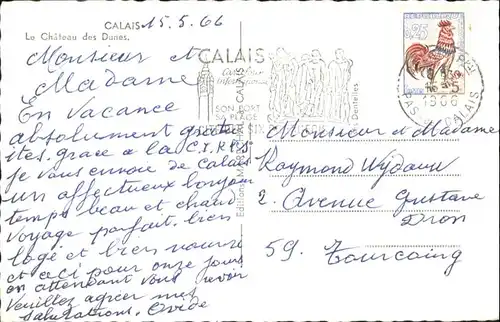 CALAIS
15.5.66
Le Château des Dunes.
Monsieur et
Madame
En vacance
absolument gratui
ites. grace a la
je vous envoie de Calais
un affectueux bonjour
temps beau et chaud
voyage parfait. bien
logé et bien nourri
et ceci pour onze jours
en attendant vous revoir
Veuillez agréer mes
salutations. Ovide
Editions
CALAIS
SON PORT
PLAGE
Dentelles
0,25
PAS DE CALAIS
1966
Monsieur et Madame
Raymond
2. Avenue Gustave
Dron
59. Tourcoing